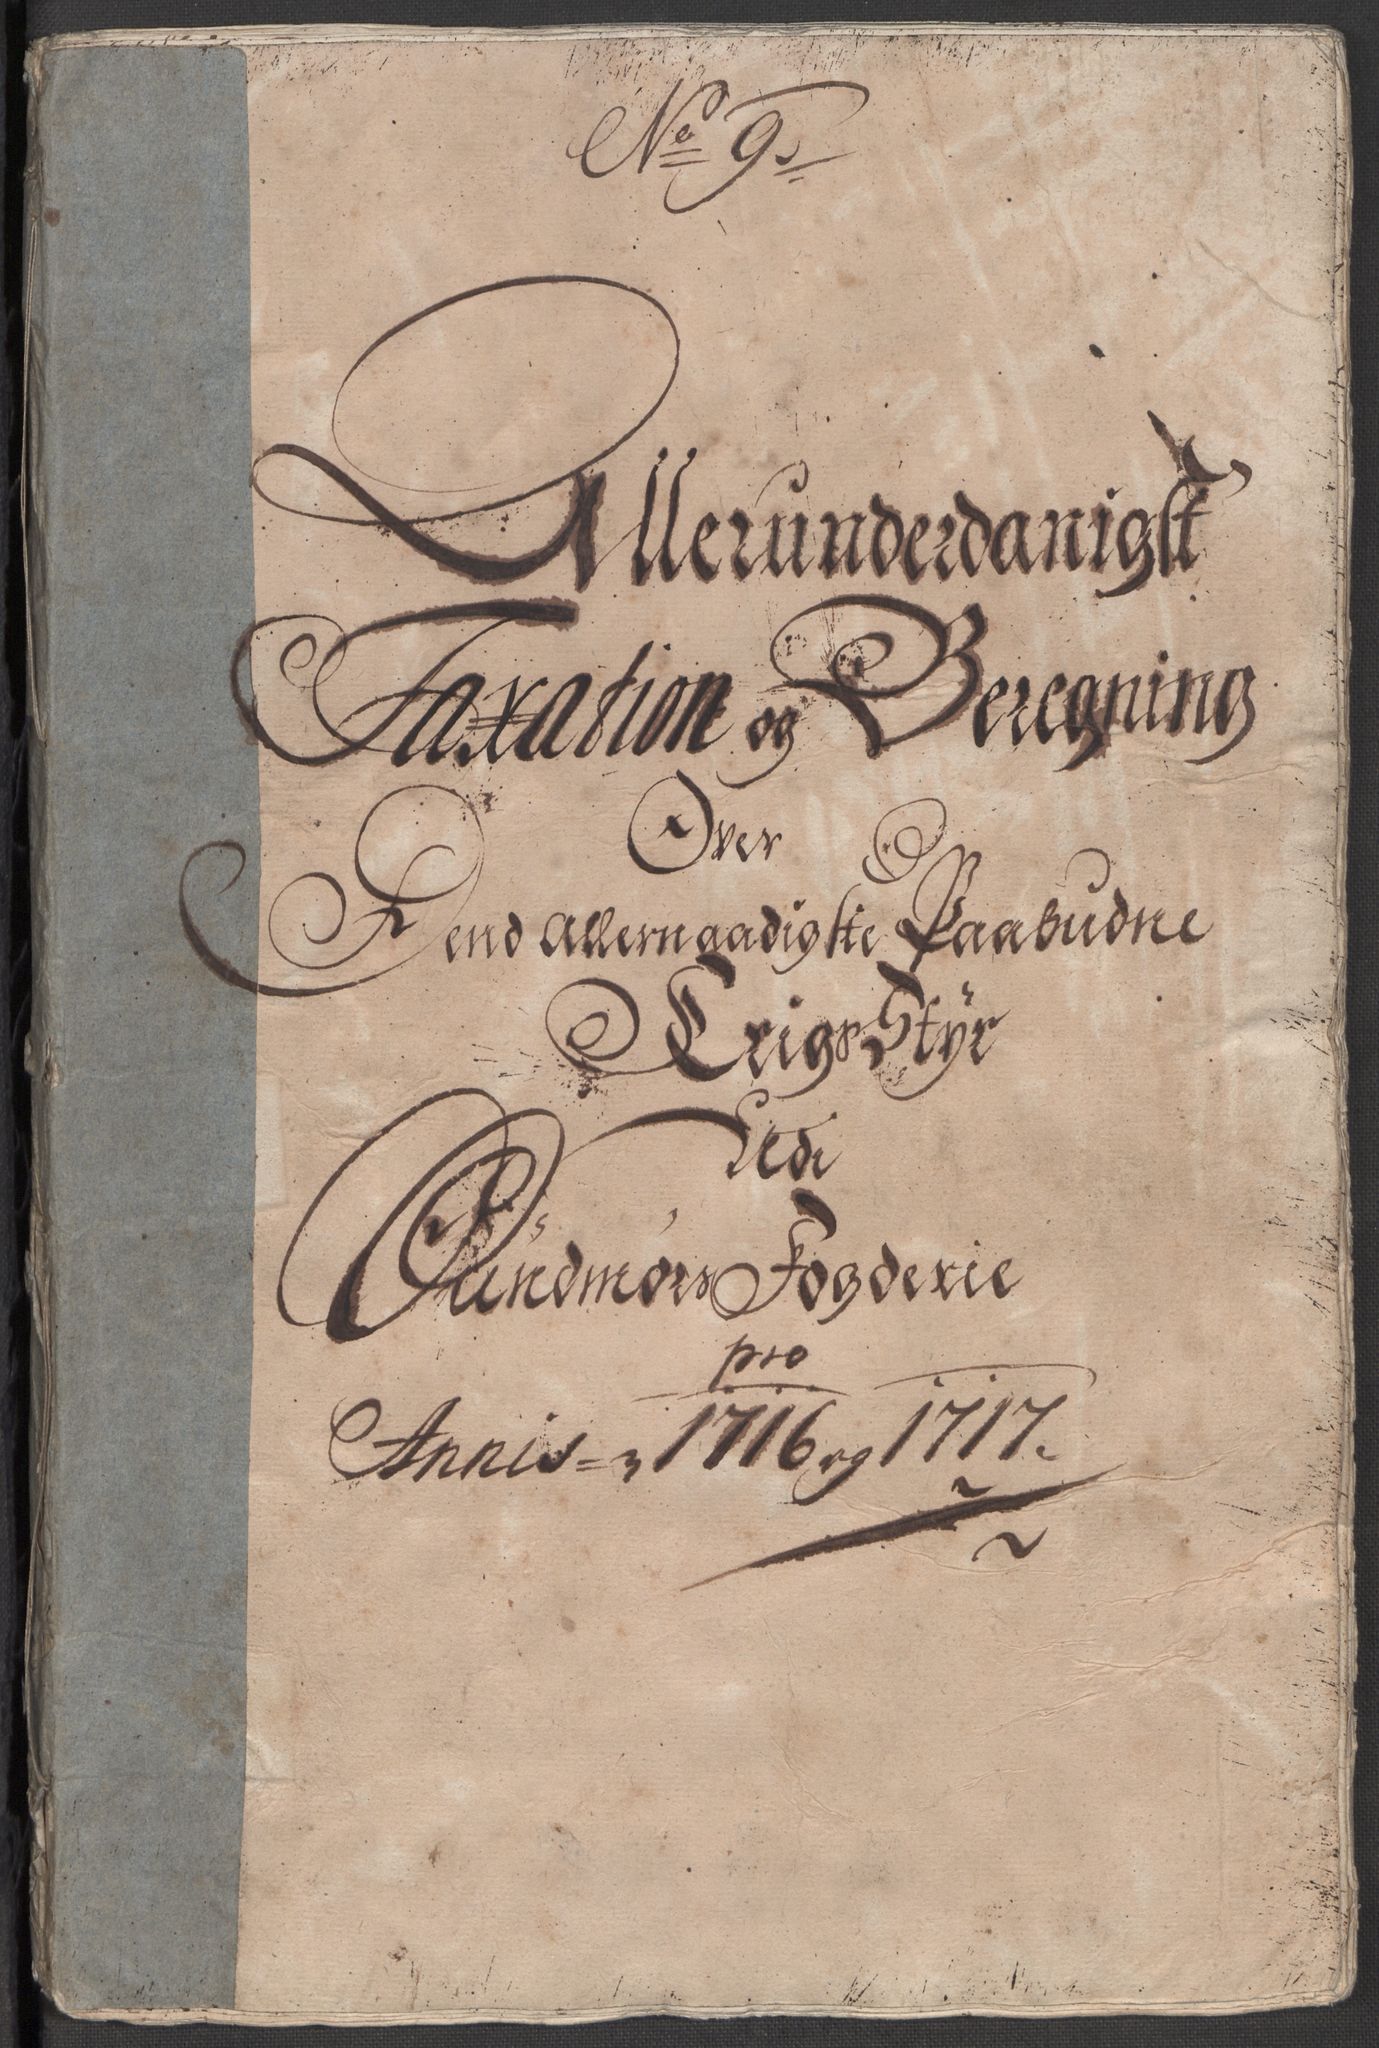 No 9.
Allerunderdanigst
Taxation og Beregning
Over
Dend Allernaadigste Paabudne
Crigs Styr
Udi
Sundmørs Fogderie
pro
Annis 1716 og 1717.